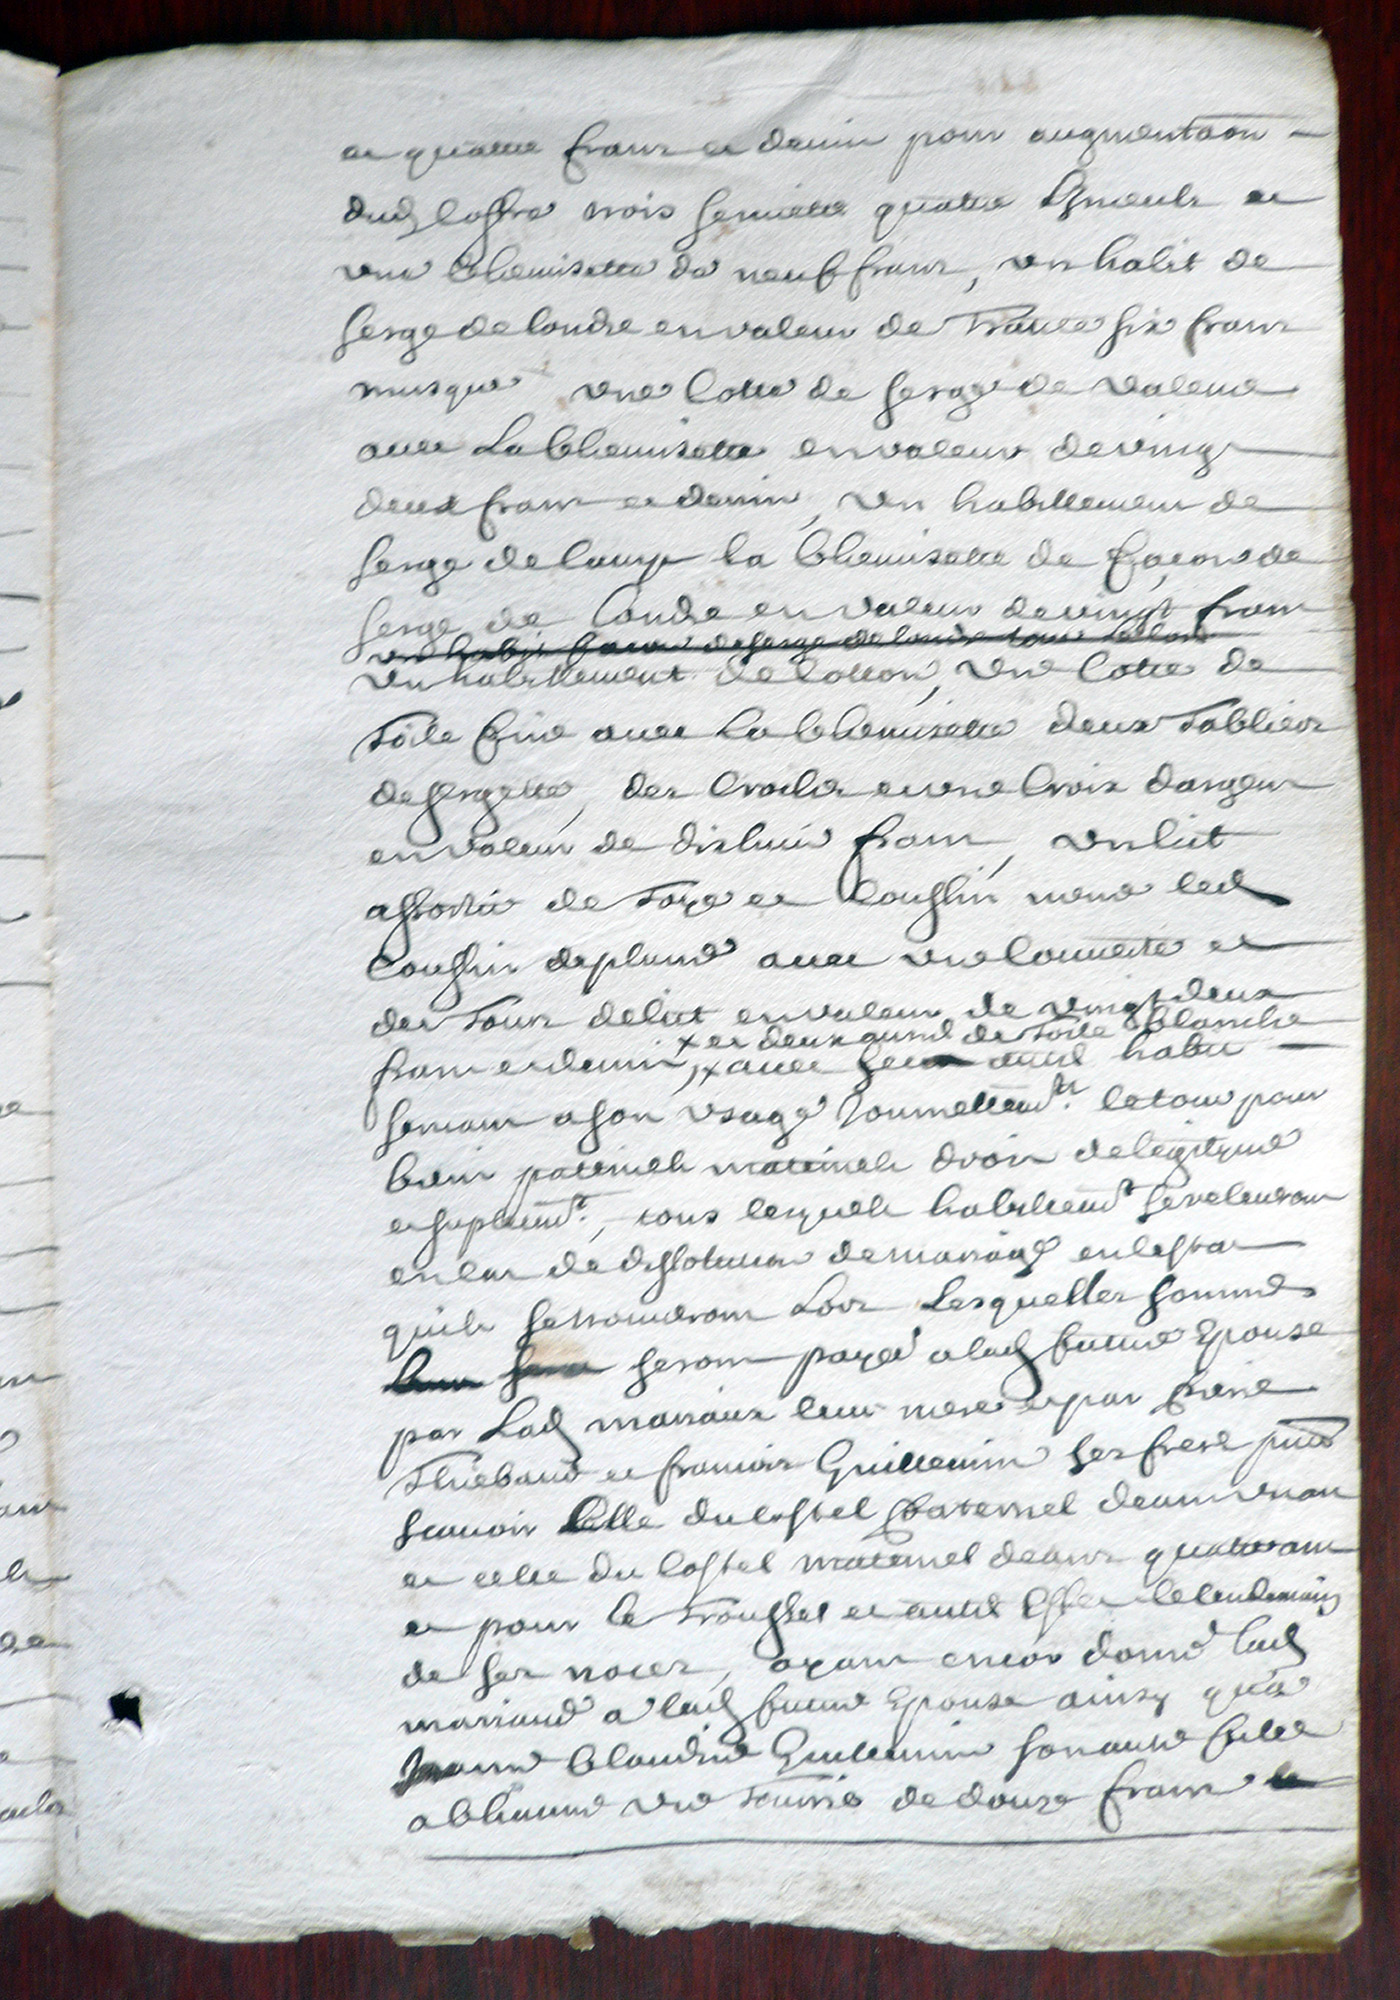 et quatre franc et demin pour augmentaon
dud coffre trois serviette quatre et
une Chemisette de neuf franc, un habit de
serge de londre en valeur de Trante six franc
musque une Cotte de serge de valeur
avec La Chemisette en valeur de vingt
deux franc et demin, un habillement de
serge de la Chemisette de façon de
serge de Londre en valeur de vingt franc
un habit facon de serge de londre
un habillement de Cotton, une Cotte de
Toile fine avec La Chemisette deux Tablier
de sergette, des Crochet et une Croix dargent
en valeur de dixhuit franc, un lict
assortie de Taye et Coussin mene led
Coussin de plume avec une Couverte et
des Tour de lict en valeur de vingt deux
x et deux de Toile blanche
franc et demin, x avec ses autre habit
servant a son usage le tout pour
bien paternels maternels droit de legityme
et suplemt., tous lesquels habillemt se
en cas de dissolution de mariage en lestat
quils se trouveront Lors Lesquelles somme
seront payer a lad future Epouse
par Lad mariaux leur mere et par
Thiebaud et francois Guillemin ses frere
scavoir Celle du Costel paternel dans un an
et celle du Costel maternel dans quatre ans
et pour le Troussel et autre Effet le lendemain
de ses noces, ayant encor donné lad
mariaud a lad future Epouse ainsy qu'a
Jeanne Claudine Guillemin son autre fille
a Chacune une de douze franc